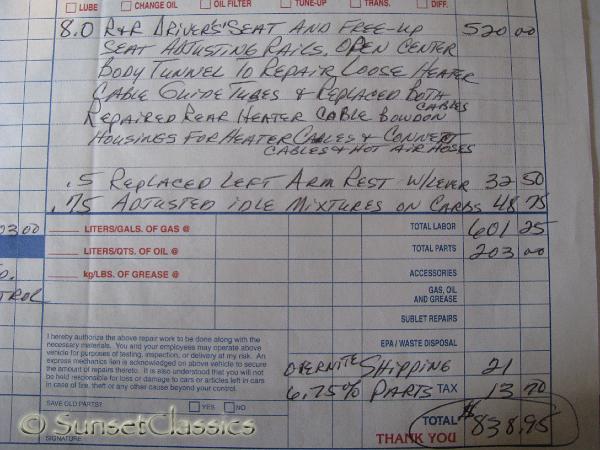 LUBE CHANGE OIL OIL FILTER TUNE-UP TRANS. DIFF.
8.0 R&R DRIVERS SEAT AND FREE-UP 520 00
SEAT ADJUSTING RAILS, OPEN CENTER
BODY TUNNEL TO REPAIR LOOSE HEATER
CABLE GUIDE TUBES & REPLACED BOTH
CABLES
REPAIRED REAR HEATER CABLE BOWDON
HOUSINGS FOR HEATER CABLES & CONNECT
CABLES & HOT AIR HOSES
.5 REPLACED LEFT ARM REST W/LEVER 32 50
.75 ADJUSTED IDLE MIXTURES ON CARBS 48 75
LITERS/GALS. OF GAS @ TOTAL LABOR 601 25
03 00
LITERS/QTS. OF OIL @ TOTAL PARTS 203 00
kg/LBS. OF GREASE @ ACCESSORIES
TROL
GAS, OIL
AND GREASE
SUBLET REPAIRS
I hereby authorize the above repair work to be done along with the
necessary materials. You and your employees may operate above
vehicle for purposes of testing, inspection, or delivery at my risk. An
express mechanics lien is acknowledged on above vehicle to secure
the amount of repairs thereto. It is also understood that you will not
be held responsible for loss or damage to cars or articles left in cars
in case of fire, theft or any other cause beyond your control.
EPA / WASTE DISPOSAL
OVERNITE SHIPPING 21
6.75% PARTS TAX 13 70
SAVE OLD PARTS? YES NO
TOTAL $838.95
THANK YOU
© SunsetClassics
SIGNATURE